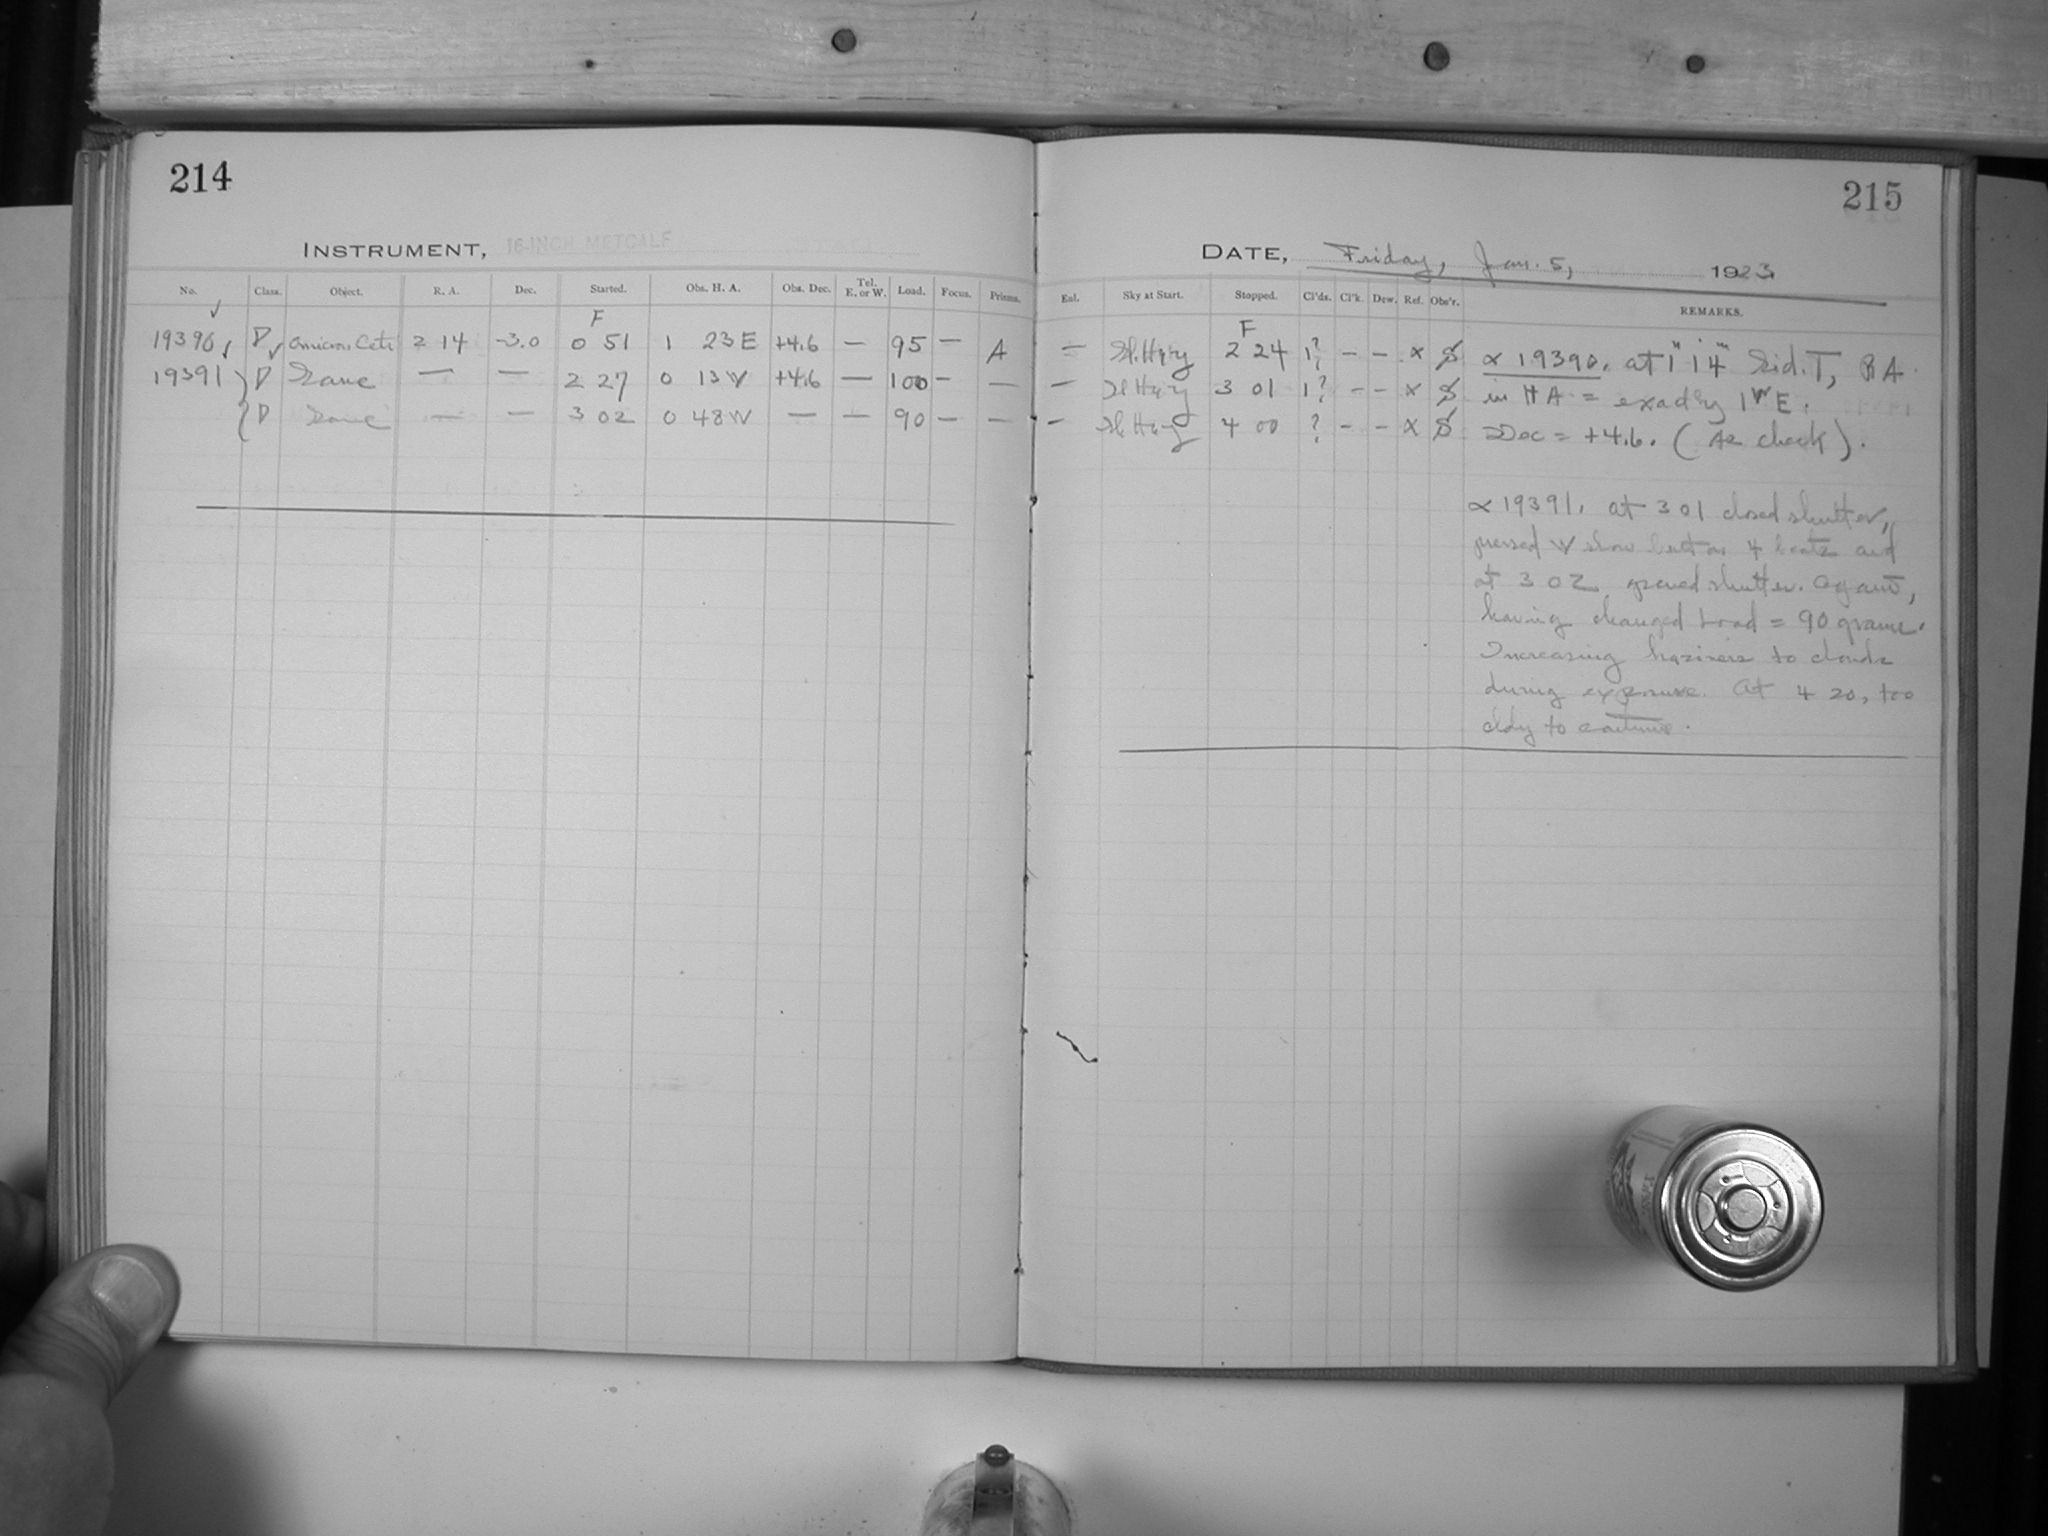 214
INSTRUMENT, 16-INCH METCALF
No. Class. Object. R. A. Dec. Started. Obs. H. A. Obs. Dec. Tel. E. or W. Load. Focus. Prisms.
F
19390 D Omicron Ceti 2 14 -3.0 0 51 1 23 E +4.6 — 95 — A
19391 D Same — — 2 27 0 13 W +4.6 — 100 — —
D Same — — 3 02 0 48 W — — 90 — —
215
DATE, Friday, Jan. 5, 1923
Eal. Sky at Start. Stopped. Cl'ds. Cl'k. Dew. Ref. Obs'r. REMARKS.
F
— Sl. Hazy 2 24 1? — — x S
— Sl Hazy 3 01 1? — — x S
— Sl. Hazy 4 00 ? — — x S
α 19390. at 1 14 Sid. T, RA
in HA = exactly 1 E.
Dec = +4.6. ( check).
α 19391. at 3 01 closed shutter,
pressed W slow button 4 beats and
at 3 02 opened shutter. again,
having changed Load = 90 grams.
Increasing haziness to clouds
during exposure. At 4 20, too
cldy to continue.